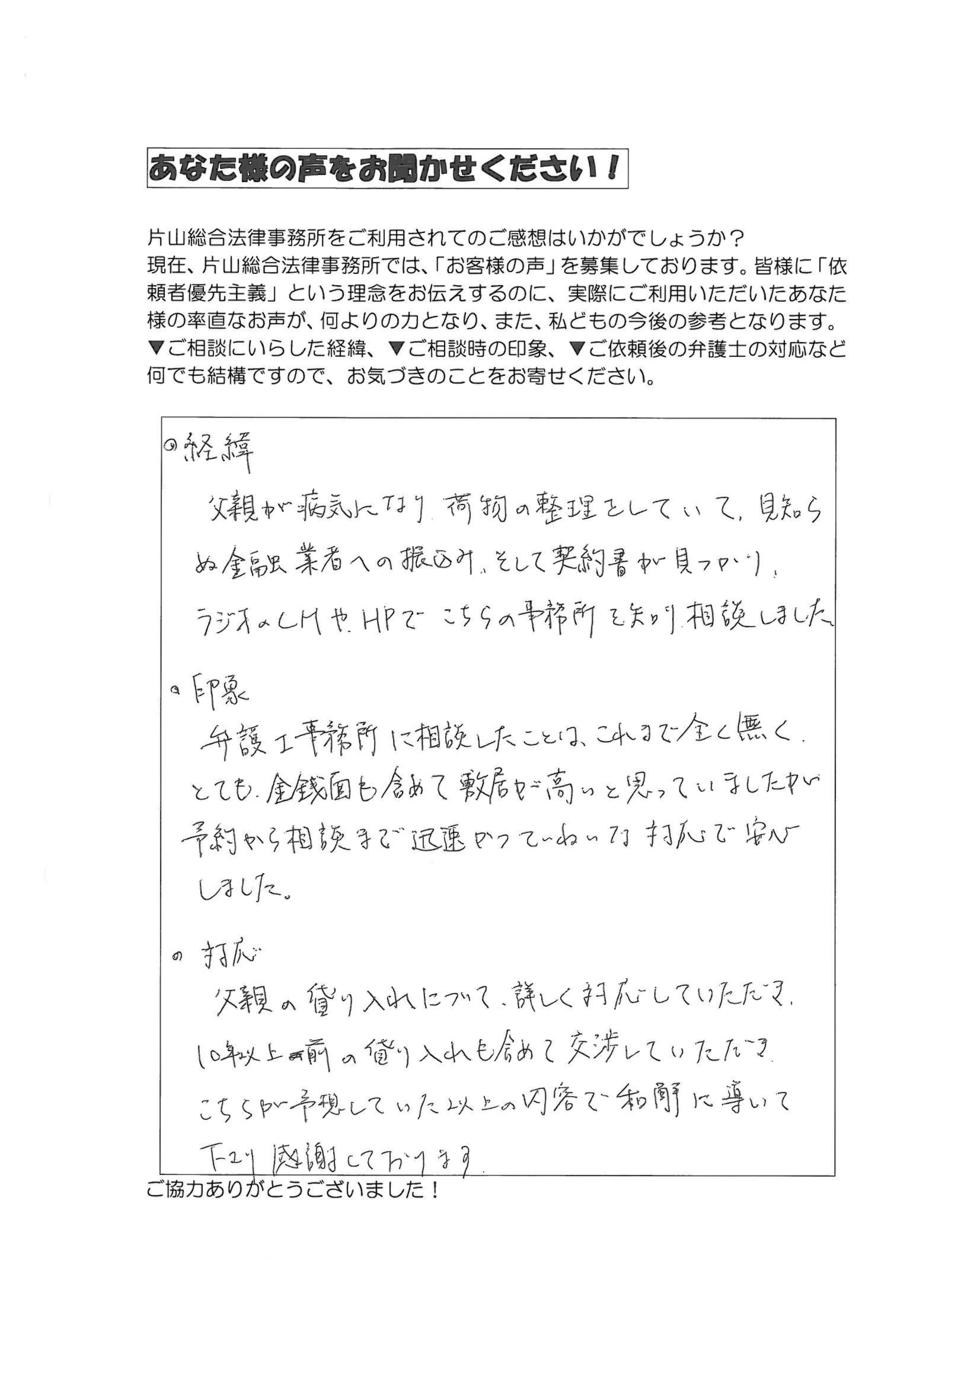 あなた様の声をお聞かせください！
片山総合法律事務所をご利用されてのご感想はいかがでしょうか？
現在、片山総合法律事務所では、「お客様の声」を募集しております。皆様に「依
頼者優先主義」という理念をお伝えするのに、実際にご利用いただいたあなた
様の率直なお声が、何よりの力となり、また、私どもの今後の参考となります。
▼ご相談にいらした経緯、▼ご相談時の印象、▼ご依頼後の弁護士の対応など
何でも結構ですので、お気づきのことをお寄せください。
◎経緯
父親が病気になり、荷物の整理をしていて、見知ら
ぬ金融業者への振込み、そして契約書が見つかり、
ラジオのCMや、HPでこちらの事務所を知り、相談しました。
◎印象
弁護士事務所に相談したことは、これまで全く無く、
とても、金銭面も含めて敷居が高いと思っていましたが
予約から相談まで迅速かつていねいな対応で安心
しました。
◎対応
父親の借り入れについて、詳しく対応していただき、
10年以上前の借り入れも含めて交渉していただき
こちらが予想していた以上の内容で和解に導いて
下さり感謝しております。
ご協力ありがとうございました！